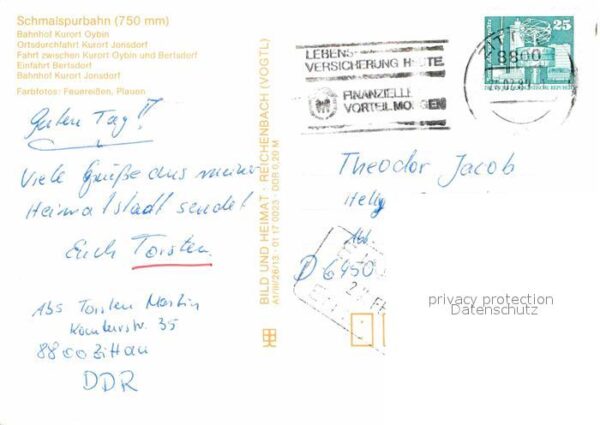 Schmalspurbahn (750 mm)
Bahnhof Kurort Oybin
Ortsdurchfahrt Kurort Jonsdorf
Fahrt zwischen Kurort Oybin und Bertsdorf
Einfahrt Bertsdorf
Bahnhof Kurort Jonsdorf
Farbfotos: Feuereißen, Plauen
Guten Tag!!
Viele Grüße aus meiner
Heimatstadt sendet
Euch Torsten
Abs Torsten Martin
35
8800 Zittau
DDR
BILD UND HEIMAT · REICHENBACH (VOGTL)
A1/III/26/13 · 01 17 0023 · DDR 0,20 M
LEBENS-
VERSICHERUNG HEUTE
FINANZIELLE
VORTEIL MORGEN
ZITT
8800
25
DEUTSCHE DEMOKRATISCHE REPUBLIK
Theodor Jacob
D 6450
privacy protection
Datenschutz